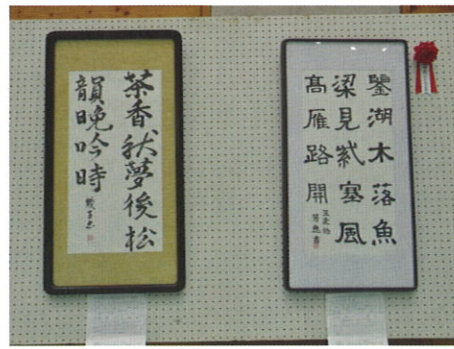 茶香秋夢後松
韻晩吟時
鑒湖木落魚
梁見紫塞風
高雁路開